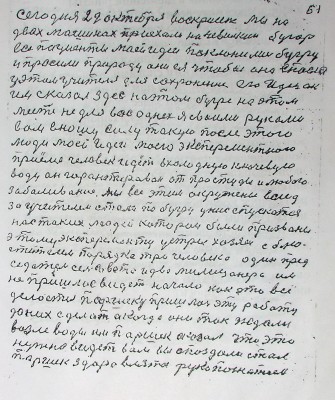 61
сегодня 22 октября воскрисне мы на
двах машинах приехали на чевилкин бугор
все пациенты моей идеи поклонились бугру
и просили природу они ея чтобы она спасла
учителя для сохранение его идеи он
им сказал здес на этом бугре на этом
месте не для вас одне я своими руками
вам сношу силу такую после этого
люди моей идеи моего эксперементного
приёма человек идёт в холодную ключевую
воду он гарантирован от простуды и любого
забаливание. мы все этим окружени вслид
за учителем стали по бугру униз спускатся
нас таких людей которои были призвани
этому эксперименту устрил хозяен с блю
стителем порядка три человека один пред
седател селсовета и два милиционера им
не пришлос видет начало как это всё
делос
дакие сделат а когда они так ждали
возле воды им паршек сказал что это
нужно видет вам вы споздали стал
паршек здаровлятся рукопожатием